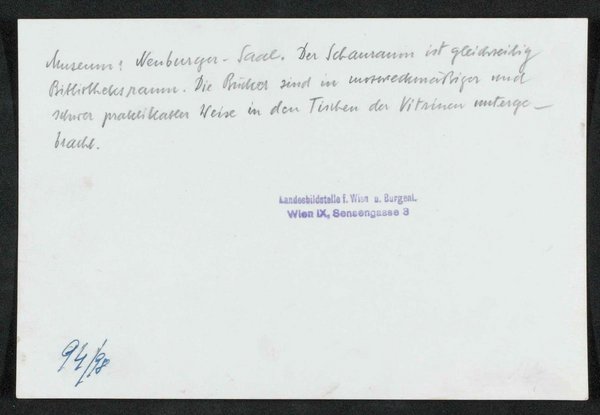 Museum: Neuburger-Saal. Der Schauraum ist gleichzeitig
Bibliotheksraum. Die Bücher sind in unzweckmäßiger und
schwer praktikabler Weise in den Tischen der Vitrinen unterge-
bracht.
Landesbildstelle f. Wien u. Burgenl.
Wien IX, Sensengasse 3
94/98